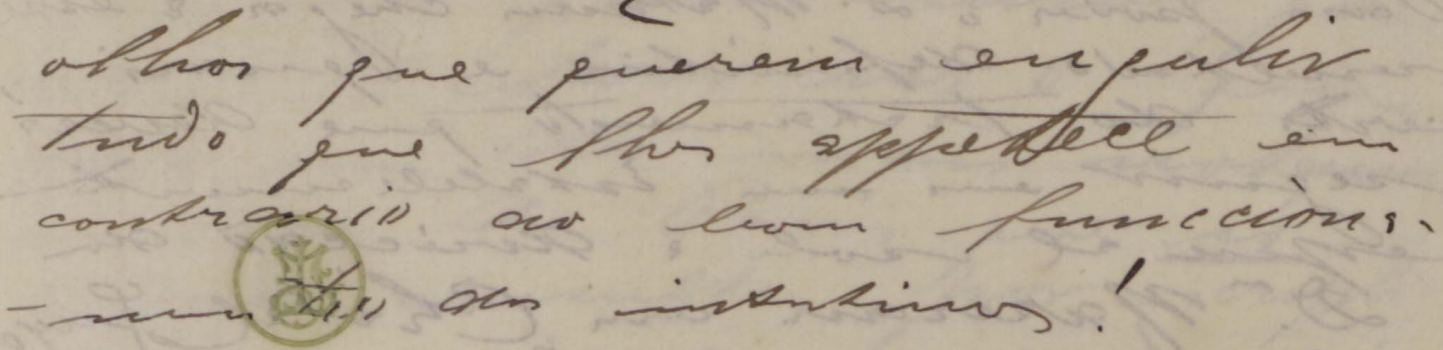 olhos que querem engulir
tudo que lhes appetece em
contrario ao bom funccion-
-mento dos intestinos!